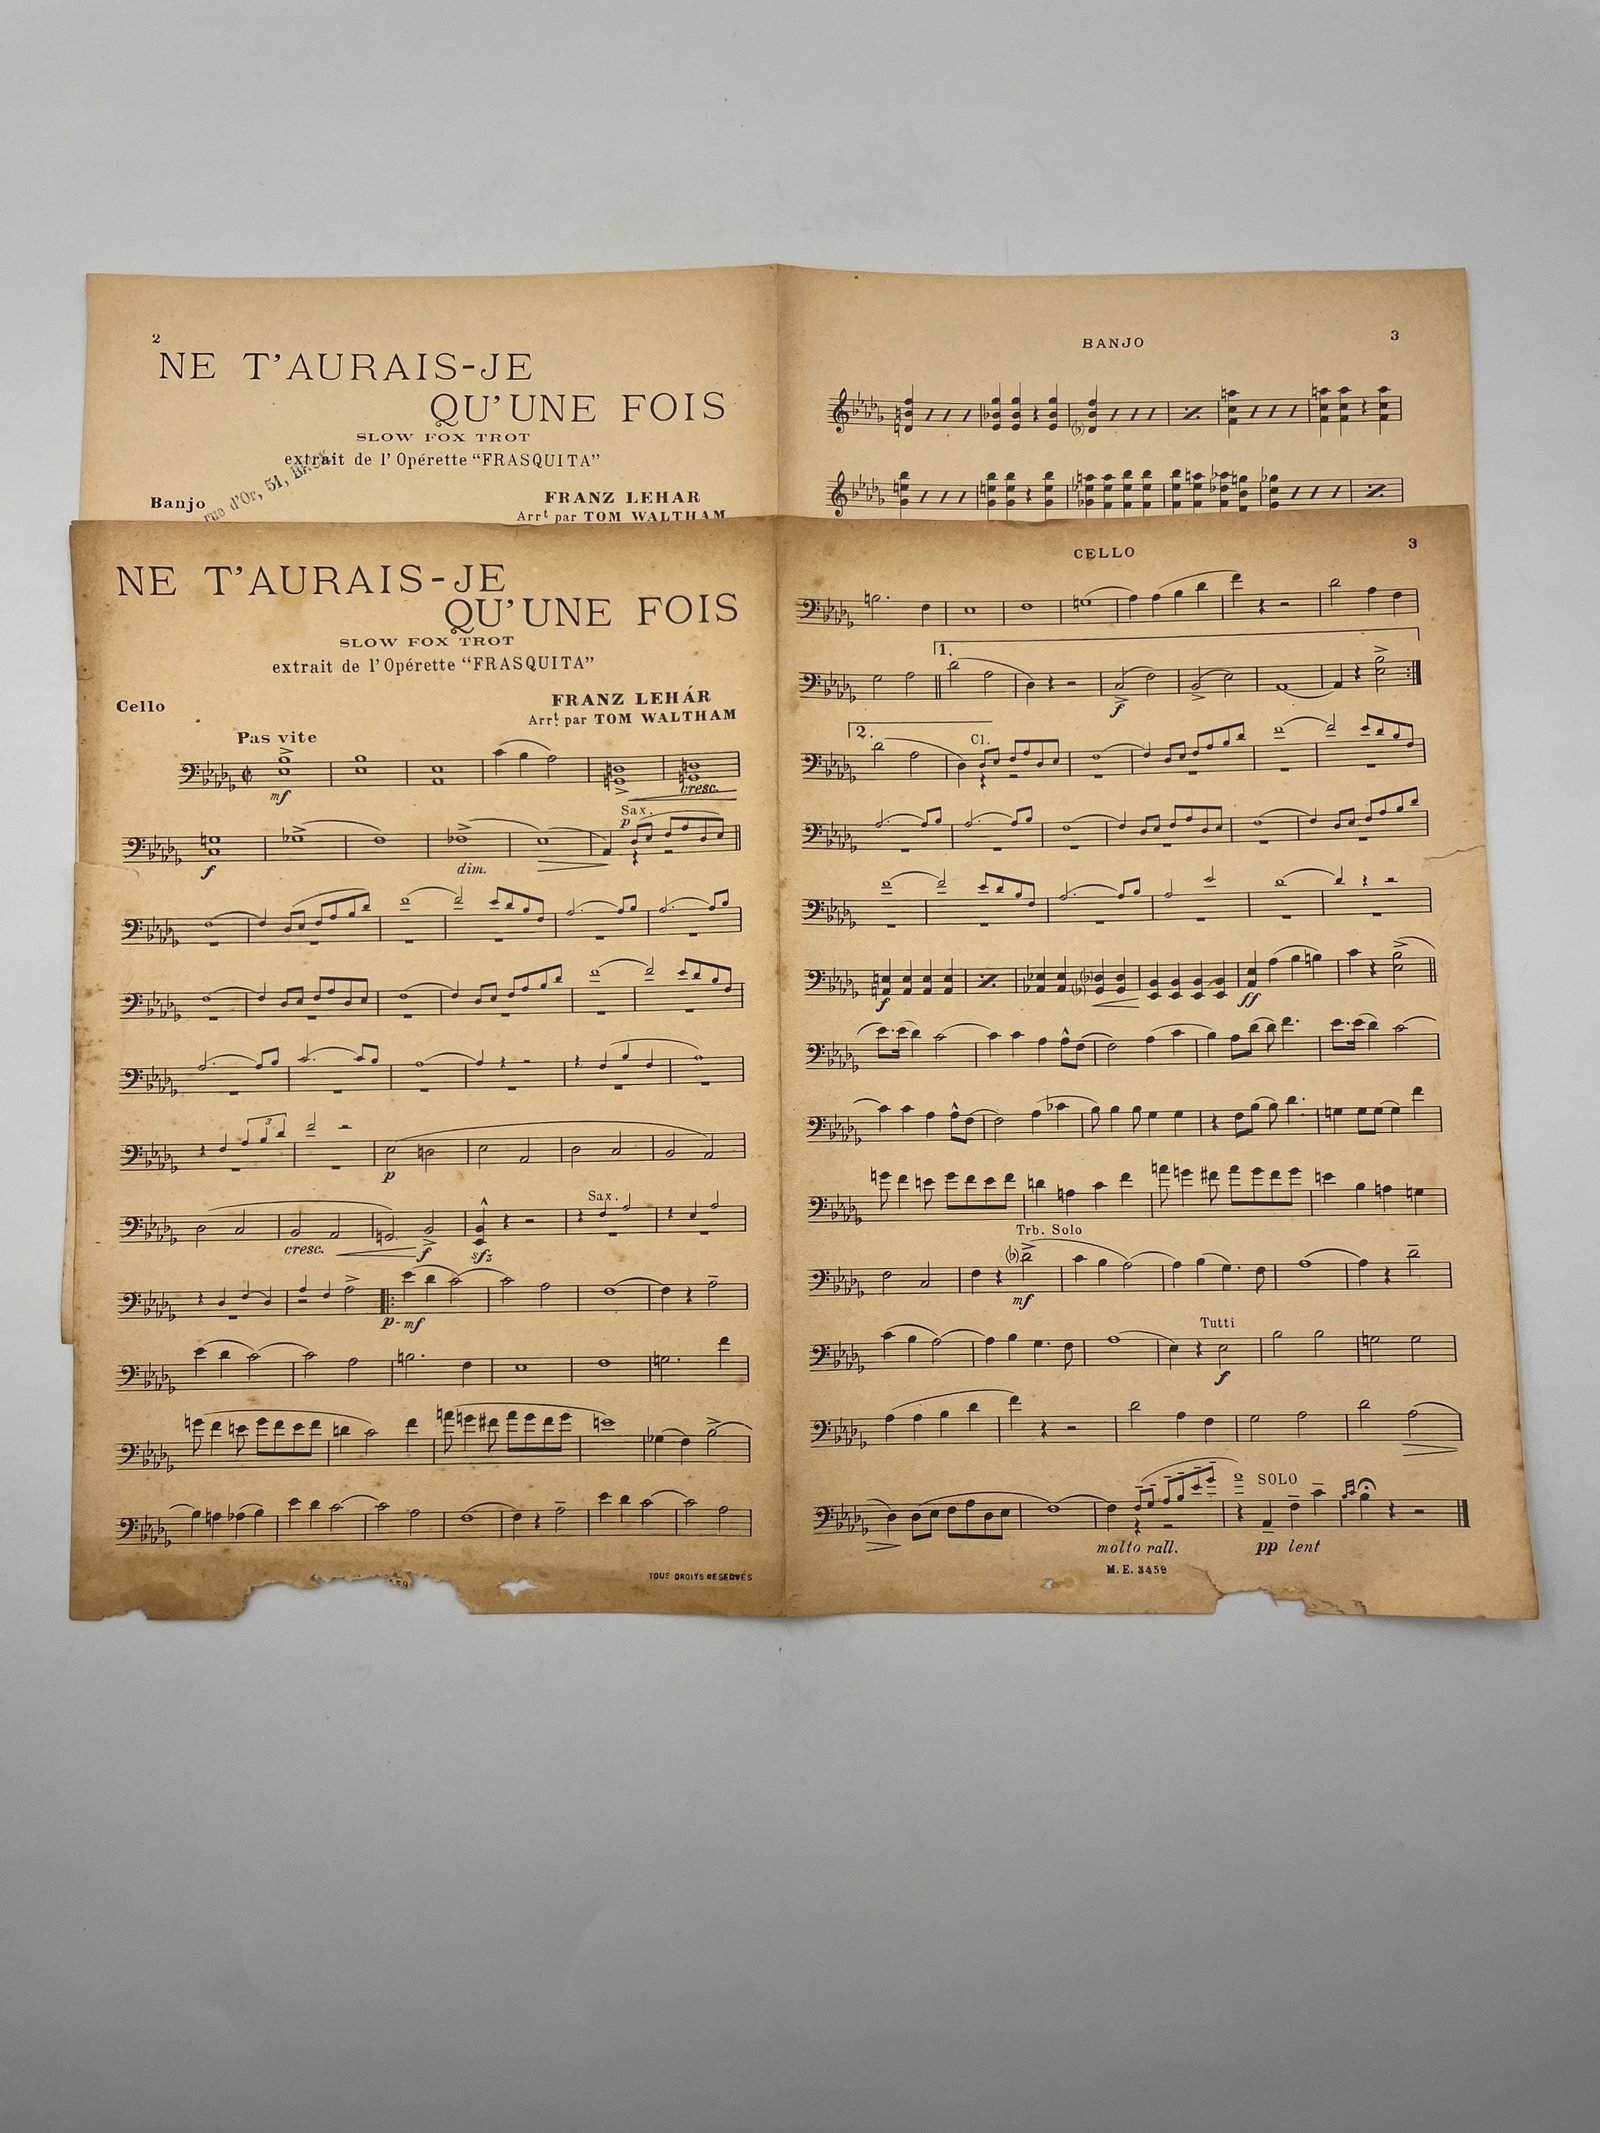 2
NE T'AURAIS-JE
QU'UNE FOIS
SLOW FOX TROT
extrait de l'Opérette "FRASQUITA"
rue d'Or, 51,
Banjo
FRANZ LEHAR
Arrt par TOM WALTHAM
BANJO
3
NE T'AURAIS-JE
QU'UNE FOIS
SLOW FOX TROT
extrait de l'Opérette "FRASQUITA"
Cello
FRANZ LEHÁR
Arrt par TOM WALTHAM
Pas vite
mf
cresc.
Sax.
p
f
dim.
3
p
Sax.
cresc.
f
sfz
p-mf
TOUS DROITS RESERVÉS
CELLO
3
1.
f
2.
Cl.
f
ff
Trb. Solo
mf
Tutti
f
SOLO
molto rall.
pp lent
M. E. 3459